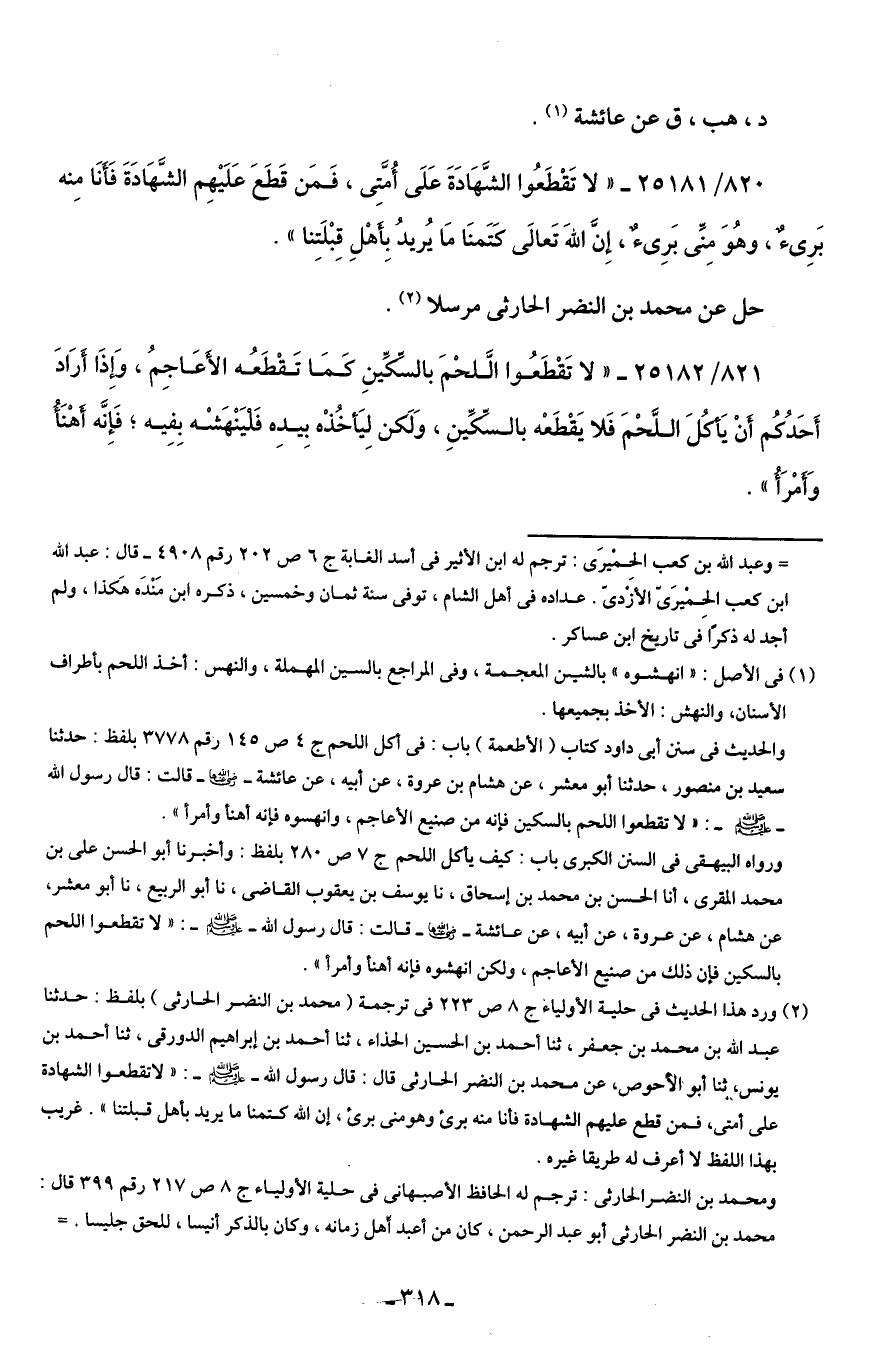 د ، هب ، ق عن عائشة (١) .
٨٢٠/ ٢٥١٨١ ـ « لا تَقْطَعُوا الشَّهَادَةَ عَلَى أُمَّتِى ، فَـمَن قَطَعَ عَلَيْهِم الشَّهَادَةَ فَأَنَا مِنه
بَرِىءٌ ، وهُوَ مِنِّى بَرِىءٌ ، إِنَّ اللهَ تَعالَى كَتَمنَا مَا يُرِيدُ بِأَهْلِ قِبْلَتِنا » .
حل عن محمد بن النضر الحارثى مرسلا (٢) .
٨٢١/ ٢٥١٨٢ ـ « لا تَقْطَعُـوا الَّـلحْمَ بالسِّكِّينِ كَـمَـا تَـقْطَعُـه الأَعَـاجِمُ ، وَإِذَا أَرَادَ
أَحَدُكُم أَنْ يَأكُلَ الـلَّحْمَ فَلا يَقْطَعْه بالـسِّكِّينِ ، ولَكن لِيَأخُذْه بِيـدِه فَلْيَنْهَشْـه بِفِيـه ؛ فَإِنَّه أَهْنَأُ
وأَمْرَأُ » .
= وعبد الله بن كعب الحِـمْيرَى : ترجم له ابن الأثير فى أسد الغـابة ج ٦ ص ٢٠٢ رقم ٤٩٠٨ ـ قال : عبد الله
ابن كعب الحِـمْيرَىّ الأزْدىّ . عـداده فى أهل الشام ، توفى سنة ثمـان وخمسين ، ذكـره ابن مَنْدَه هَكذا ، ولم
أجد له ذكرًا فى تاريخ ابن عساكر .
(١) فى الأصل : « انهـشـوه » بالشيـن المعجمـة ، وفى المراجع بالسـين المهـملة ، والنهس : أخـذ اللحم بأطراف
الأسنان، والنهش : الأخذ بجميعها .
والحديث فى سنن أبى داود كتاب ( الأطعمة ) باب : فى أكل اللحم ج ٤ ص ١٤٥ رقم ٣٧٧٨ بلفظ : حدثنا
سعيد بن منصور ، حدثنا أبو معشر ، عن هشام بن عروة ، عن أبيه ، عن عائشة ـ رضي الله عنها ـ قالت : قال رسول الله
ـ ﷺ ـ : « لا تقطعوا اللحم بالسكين فإنه من صنيع الأعاجم ، وانهسوه فإنه أهنأ وأمرأ » .
ورواه البيهـقى فى السنن الكبرى باب : كيف يأكل اللحم ج ٧ ص ٢٨٠ بلفظ : وأخبـرنا أبو الحسن على بن
محمد المقرى ، أنا الحـسن بن محمد بن إسحاق ، نا يوسف بن يعقوب القـاضى ، نا أبو الربيع ، نا أبو معشر،
عن هشام ، عن عـروة ، عن أبيه ، عن عـائشة ـ رضي الله عنها ـ قـالت : قال رسول الله ـ ﷺ ـ : « لا تقطعـوا اللحم
بالسكين فإن ذلك من صنيع الأعاجم ، ولكن انهشوه فإنه أهنأ وأمرأ » .
(٢) ورد هذا الحديث فى حليـة الأولياء ج ٨ ص ٢٢٣ فى ترجمـة ( محمد بن النضر الحـارثى ) بلفـظ : حـدثنا
عبـد الله بن محمـد بن جعـفر ، ثنا أحمـد بن الحسين الحذاء ، ثنا أحـمد بن إبراهيم الدورقى ، ثنا أحمـد بن
يونس، ثنا أبو الأحوص، عن محـمد بن النضر الحـارثى قال : قال رسول الله ـ ﷺ ـ : « لاتقطعـوا الشهادة
على أمتى، فـمن قطع عليهم الشهـادة فأنا منه برئ وهومنى برئ ، إن الله كـتمنا ما يريد بأهل قـبلتنا » . غريب
بهذا اللفظ لا أعرف له طريقا غيره .
ومحمـد بن النضرالحارثى : ترجم له الحافظ الأصبـهانى فى حـلية الأوليـاء ج ٨ ص ٢١٧ رقم ٣٩٩ قال :
محمد بن النضر الحارثى أبو عبد الرحمن ، كان من أعبد أهل زمانه ، وكان بالذكر أنيسا ، للحق جليسا . =
ـ ٣١٨ ـ